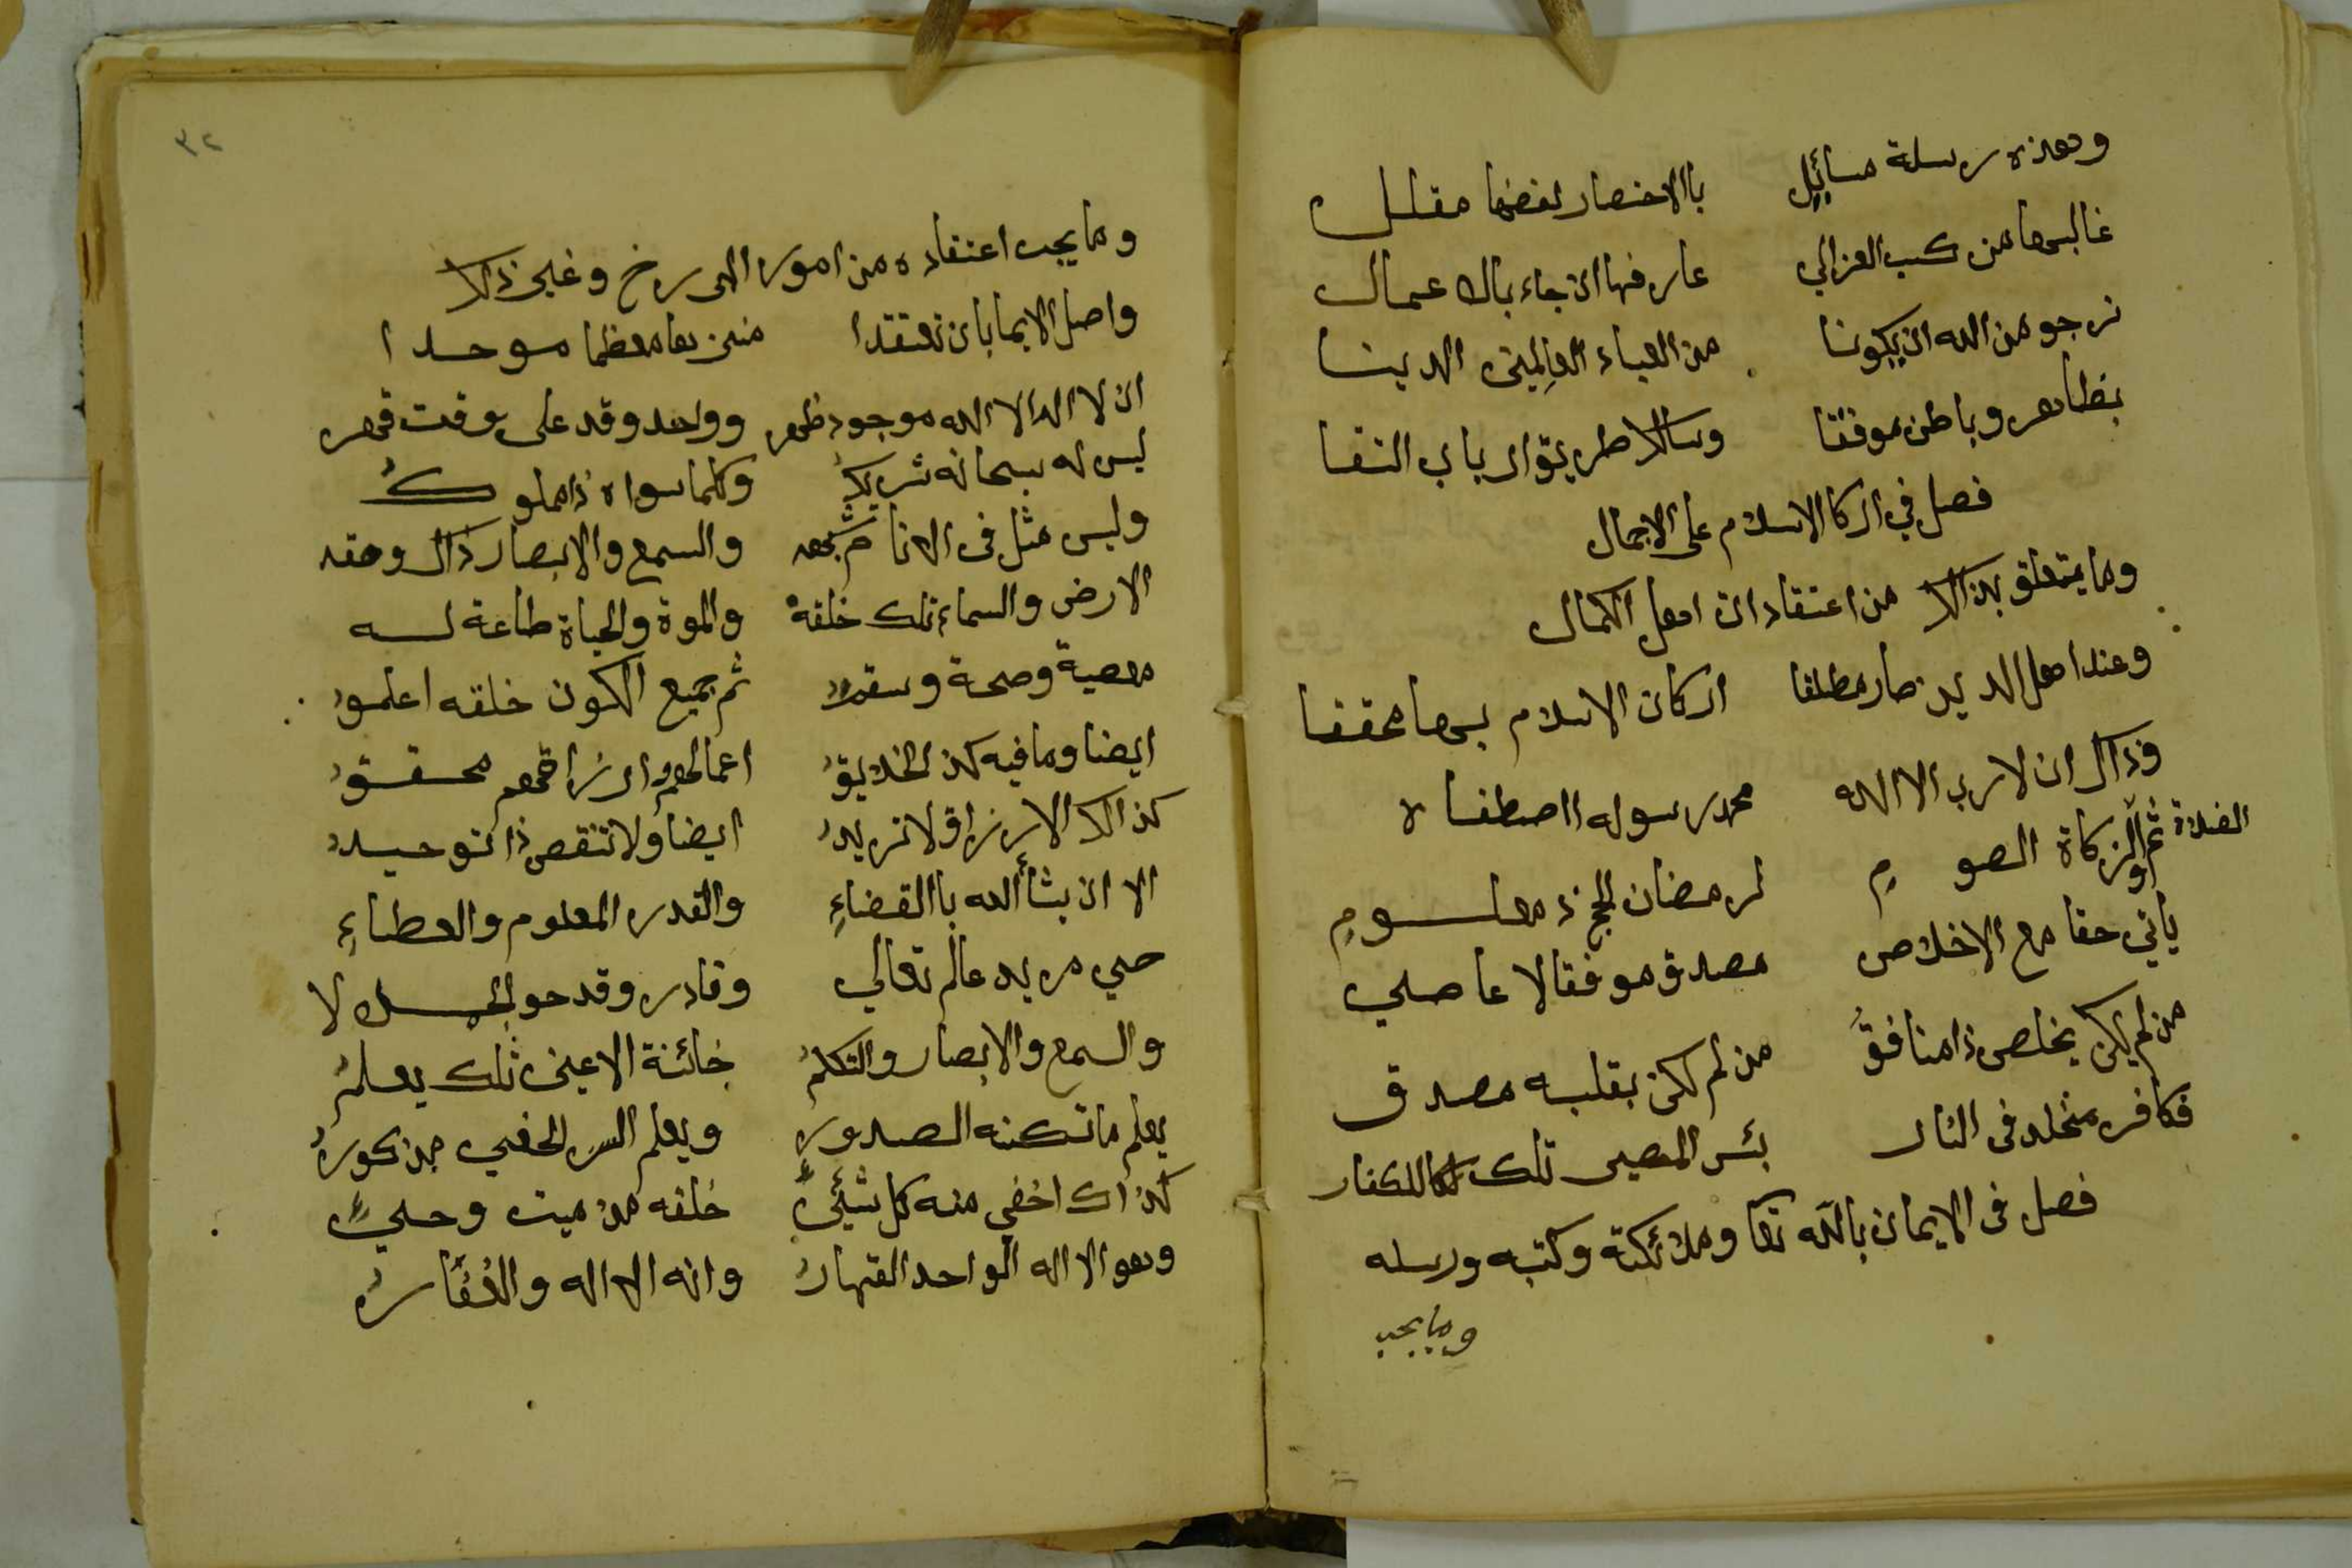 وهذه رسلة مسائل باالاختصار لفضها مقلل
غالبها من كتب الغزالي عارفها ان جاء بذاك عمال
نرجو من الله ان يكونا من العباء العالمين الدينا
بظاهر وباطن موفقا وسالكا طريق ارباب التقا
فصل في اركا الاسلام على الاجمال
وما يتعلق بذالك من اعتقادات اهل الكمال
وعند اهل الدين صار مطلقا اركان الاسلام بها محققا
وذاك ان لا رب الا الله محمد رسوله اصطفاه
الصلاة ثم والزكاة الصوم لرمضان الحج ذ معلوم
ياتي حقا مع الاخلاص مصدق موفقا لا عاصي
من لم يكن يخلص ذا منافق من لم يكن بقلبه مصدق
فكافر مخلد في النار بئس المصير تلك للكفار
فصل في الايمان بالله تعا وملائكته وكتبه ورسله
وما يجب
٣٢
وما يجب اعتقاده من امور البرزخ وغير ذالك
واصل الايما بان تعتقدا معظما موحدا
ان لا اله الا الله موجود ظهر وواحد وقد على وقت قهر
ليس له سبحانه شريك وكلما سواه ذا مملوك
وليس مثل في الانام شبهه والسمع والابصار ذاك وصفه
الارض والسماء تلك خلقه والموة والحياة طاعة له
معصية وصحة وسقم ثم جميع الكون خلقه اعلموا
ايضا وما فيه كذ الخلايق اعمالهم ارزاقهم محقق
كذالك الارزاق لا تزيد ايضا ولا تنقص ذا توحيد
الا ان يشأ الله باالقضاء والقدر المعلوم والعطاء
حي مريد عالم تعالي وقادر وقد حو الجلالا
والسمع والابصار والتكلم خائنة الاعين تلك يعلم
يعلم ما تكنه الصدور ويعلم السر الخفي مذكور
كذاك اخفي منه كل شيئ خلقه من ميت وحي
وهو الاله الواحد القهار وانه الاله والغفار